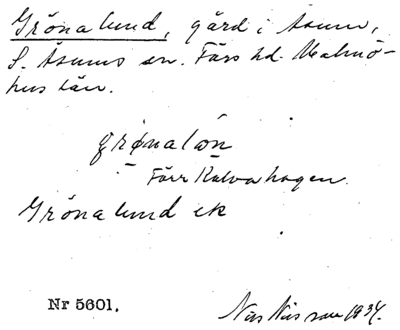 Grönalund, gård i Åsum,
S. Åsums sn. Färs hd. Malmö-
hus län.
grønalon
Förr Kalvahagen.
Grönalund ek
Nr 5601.
Nils Nilsson 1934.